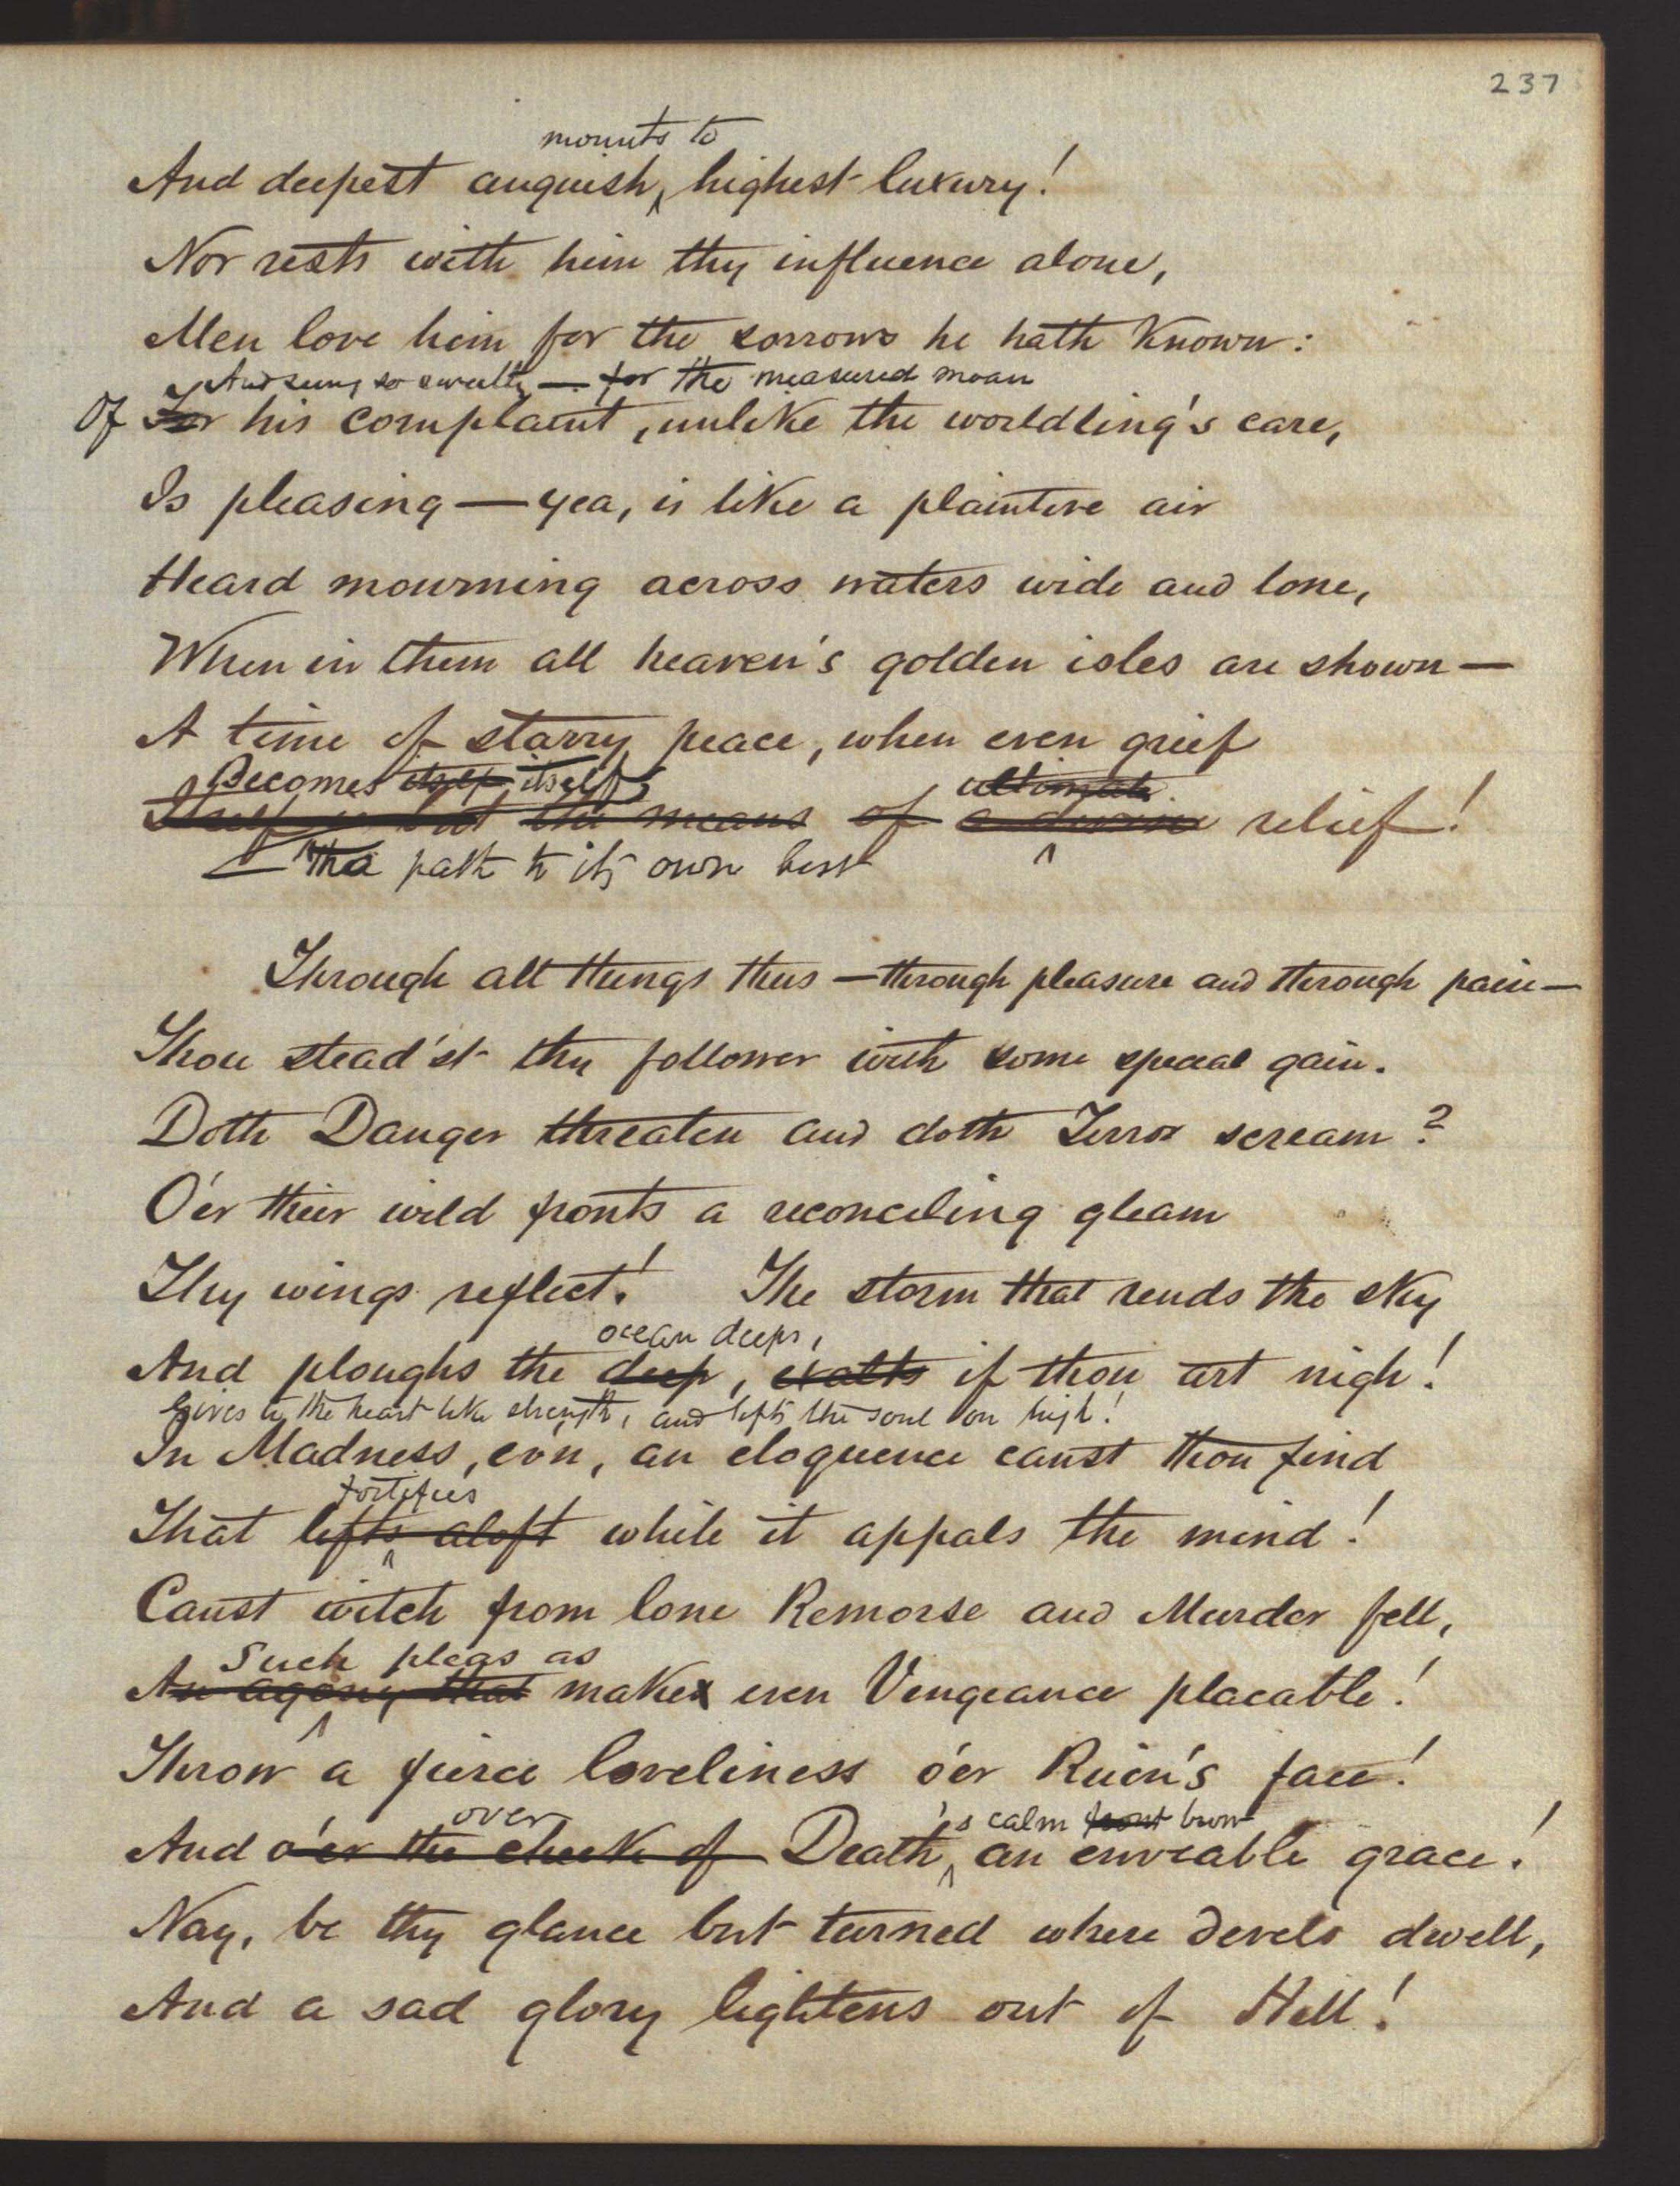 237
mounts to
And deepest anguish, highest luxury!
Nor rests with him thy influence alone,
Men love him for the sorrows he hath Known:
And sung so sweetly — for the measured moan
Of For his complaint, unlike the worldling's care,
Is pleasing — yea, is like a plaintive air
Heard mourning across waters wide and lone,
When in them all heaven's golden isles are shown —
A time of starry peace, when even grief
Becomes itself itself ultimate
Itself is but the means of a divine relief!
The path to its own best
Through all things thus — through pleasure and through pain —
Thou stead'st thy follower with some special gain.
Doth Danger threaten and doth Terror scream?
O'er their wild fronts a reconciling gleam
Thy wings reflect! The storm that rends the sky
ocean deeps,
And ploughs the deep, exalts if thou art nigh!
Gives to the heart like strength, and lifts the soul on high!
In Madness, evn, an eloquence canst thou find
fortifies
That lifts aloft while it appals the mind!
Canst witch from lone Remorse and Murder fell,
Such pleas as
An agony that makes even Vengeance placable!
Throw a fierce loveliness o'er Ruin's face!
over 's calm front brow
And o'er the cheek of Death, an enviable grace!
Nay, be thy glance but turned where devils dwell,
And a sad glory lightens out of Hell!